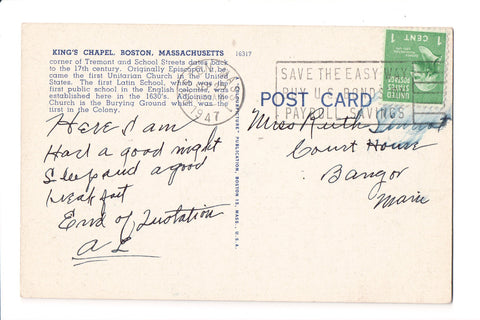 KING'S CHAPEL, BOSTON, MASSACHUSETTS 16317
corner of Tremont and School Streets dates back
to the 17th century. Originally Episcopal, it be-
came the first Unitarian Church in the United
States. The first Latin School, which was the
first public school in the English colonies, was
established here in the 1630's. Adjoining the
Church is the Burying Ground which was the
first in the Colony.
Here I am
Had a good night
Sleep and a good
breakfast
End of Quotation
A L
PUBLICATION, BOSTON 10, MASS., U.S.A.
1947
SAVE THE EASY WAY
BUY U.S. BONDS
PAYROLL SAVINGS
1 CENT 1
UNITED STATES
POSTAGE
POST CARD
Miss Ruth
Court House
Bangor
Maine